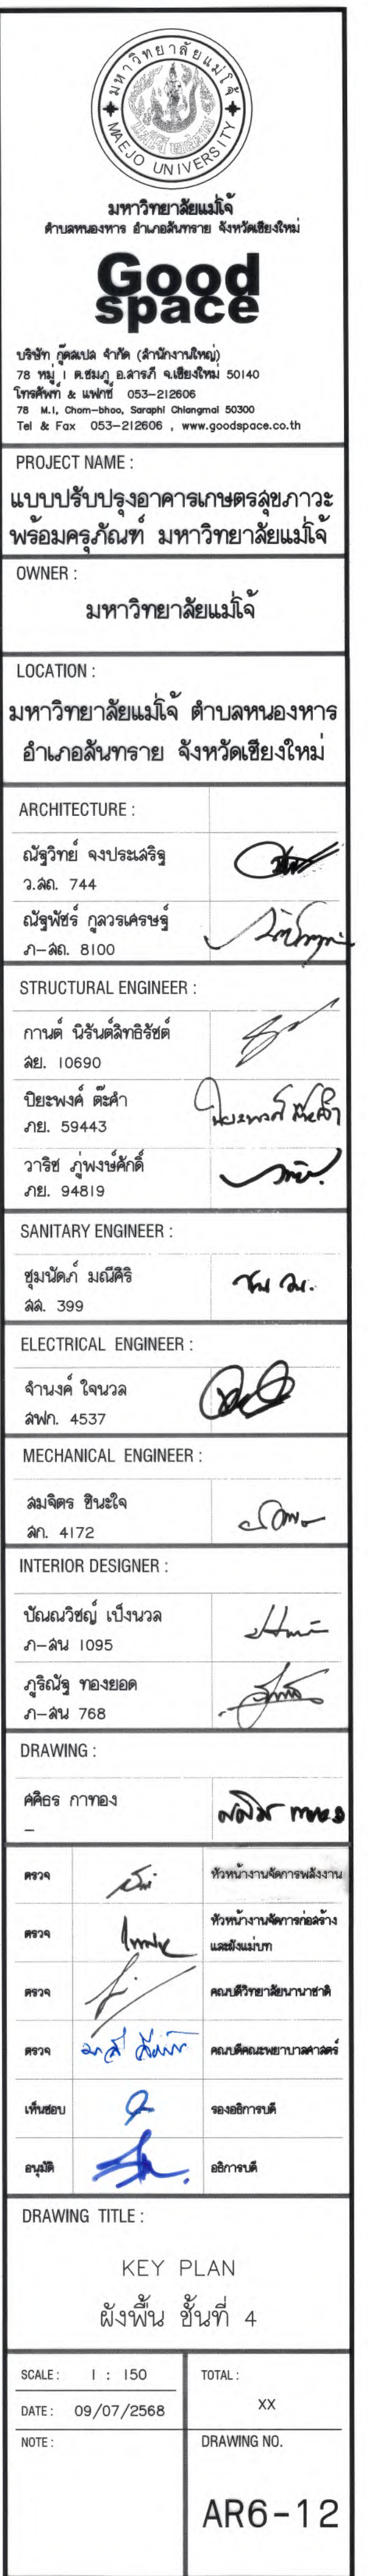 มหาวิทยาลัยแม่โจ้
MAEJO UNIVERSITY
มหาวิทยาลัยแม่โจ้
ตำบลหนองหาร อำเภอสันทราย จังหวัดเชียงใหม่
Good
space
บริษัท กู๊ดสเปส จำกัด (สำนักงานใหญ่)
78 หมู่ 1 ต.ชมภู อ.สารภี จ.เชียงใหม่ 50140
โทรศัพท์ & แฟกซ์ 053-212606
78 M.1, Chom-bhoo, Saraphi Chiangmai 50300
Tel & Fax 053-212606 , www.goodspace.co.th
PROJECT NAME :
แบบปรับปรุงอาคารเกษตรสุขภาวะ
พร้อมครุภัณฑ์ มหาวิทยาลัยแม่โจ้
OWNER :
มหาวิทยาลัยแม่โจ้
LOCATION :
มหาวิทยาลัยแม่โจ้ ตำบลหนองหาร
อำเภอสันทราย จังหวัดเชียงใหม่
ARCHITECTURE :
ณัฐวิทย์ จงประเสริฐ
ว.สถ. 744
ณัฐพัชร์ กุลวรเศรษฐ์
ภ-สถ. 8100
STRUCTURAL ENGINEER :
กานต์ นิรันต์สิทธิรัชต์
สย. 10690
ปิยะพงค์ ต๊ะคำ
ภย. 59443
วาริช ภู่พงษ์ศักดิ์
ภย. 94819
SANITARY ENGINEER :
ชุมนัดภ์ มณีศิริ
สส. 399
ELECTRICAL ENGINEER :
จำนงค์ ใจนวล
สฟก. 4537
MECHANICAL ENGINEER :
สมจิตร ชินะใจ
สก. 4172
INTERIOR DESIGNER :
ปัณณวิชญ์ เป็งนวล
ภ-สน 1095
ภูริณัฐ ทองยอด
ภ-สน 768
DRAWING :
ศศิธร กาทอง
–
ตรวจ หัวหน้างานจัดการพลังงาน
ตรวจ หัวหน้างานจัดการก่อสร้าง
และผังแม่บท
ตรวจ คณบดีวิทยาลัยนานาชาติ
ตรวจ คณบดีคณะพยาบาลศาสตร์
เห็นชอบ รองอธิการบดี
อนุมัติ อธิการบดี
DRAWING TITLE :
KEY PLAN
ผังพื้น ชั้นที่ 4
SCALE : 1 : 150
TOTAL :
XX
DATE : 09/07/2568
NOTE :
DRAWING NO.
AR6-12